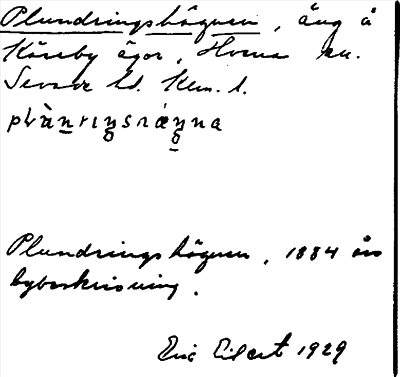 Plundringshägnen, äng å
Kåreby ägor, Horns sn.
Sevede hd. Klm. l.
Plundringshägnen, 1884 års
bybeskrivning.
Eric Eilert 1929